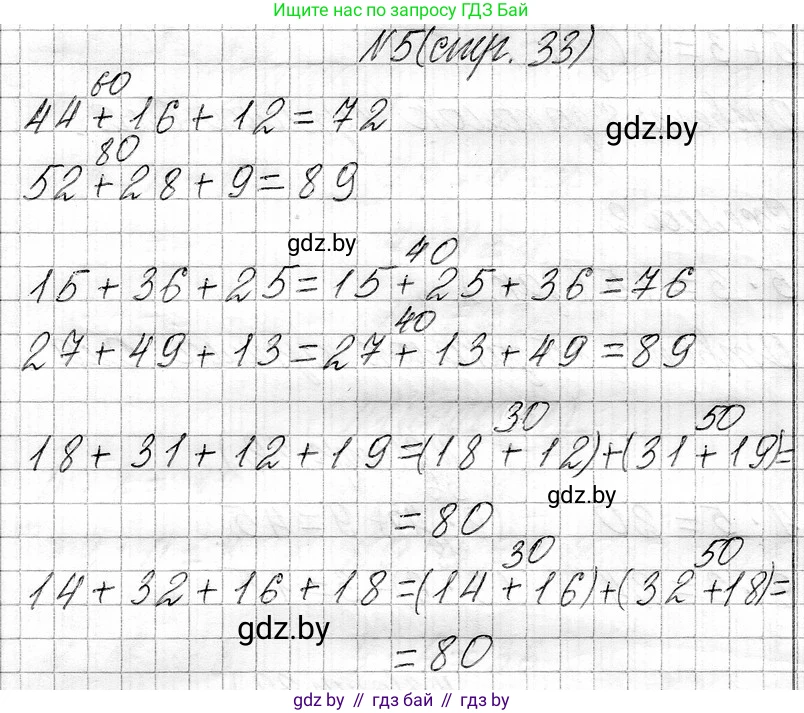 Ищите нас по запросу ГДЗ Бай
№5 (стр. 33)
60
44 + 16 + 12 = 72
gdz.by
80
52 + 28 + 9 = 89
gdz.by
40
15 + 36 + 25 = 15 + 25 + 36 = 76
40
27 + 49 + 13 = 27 + 13 + 49 = 89
30 50
18 + 31 + 12 + 19 = (18 + 12) + (31 + 19) =
gdz.by
= 80
30 50
14 + 32 + 16 + 18 = (14 + 16) + (32 + 18) =
gdz.by
= 80
gdz by // гдз бай // gdz by